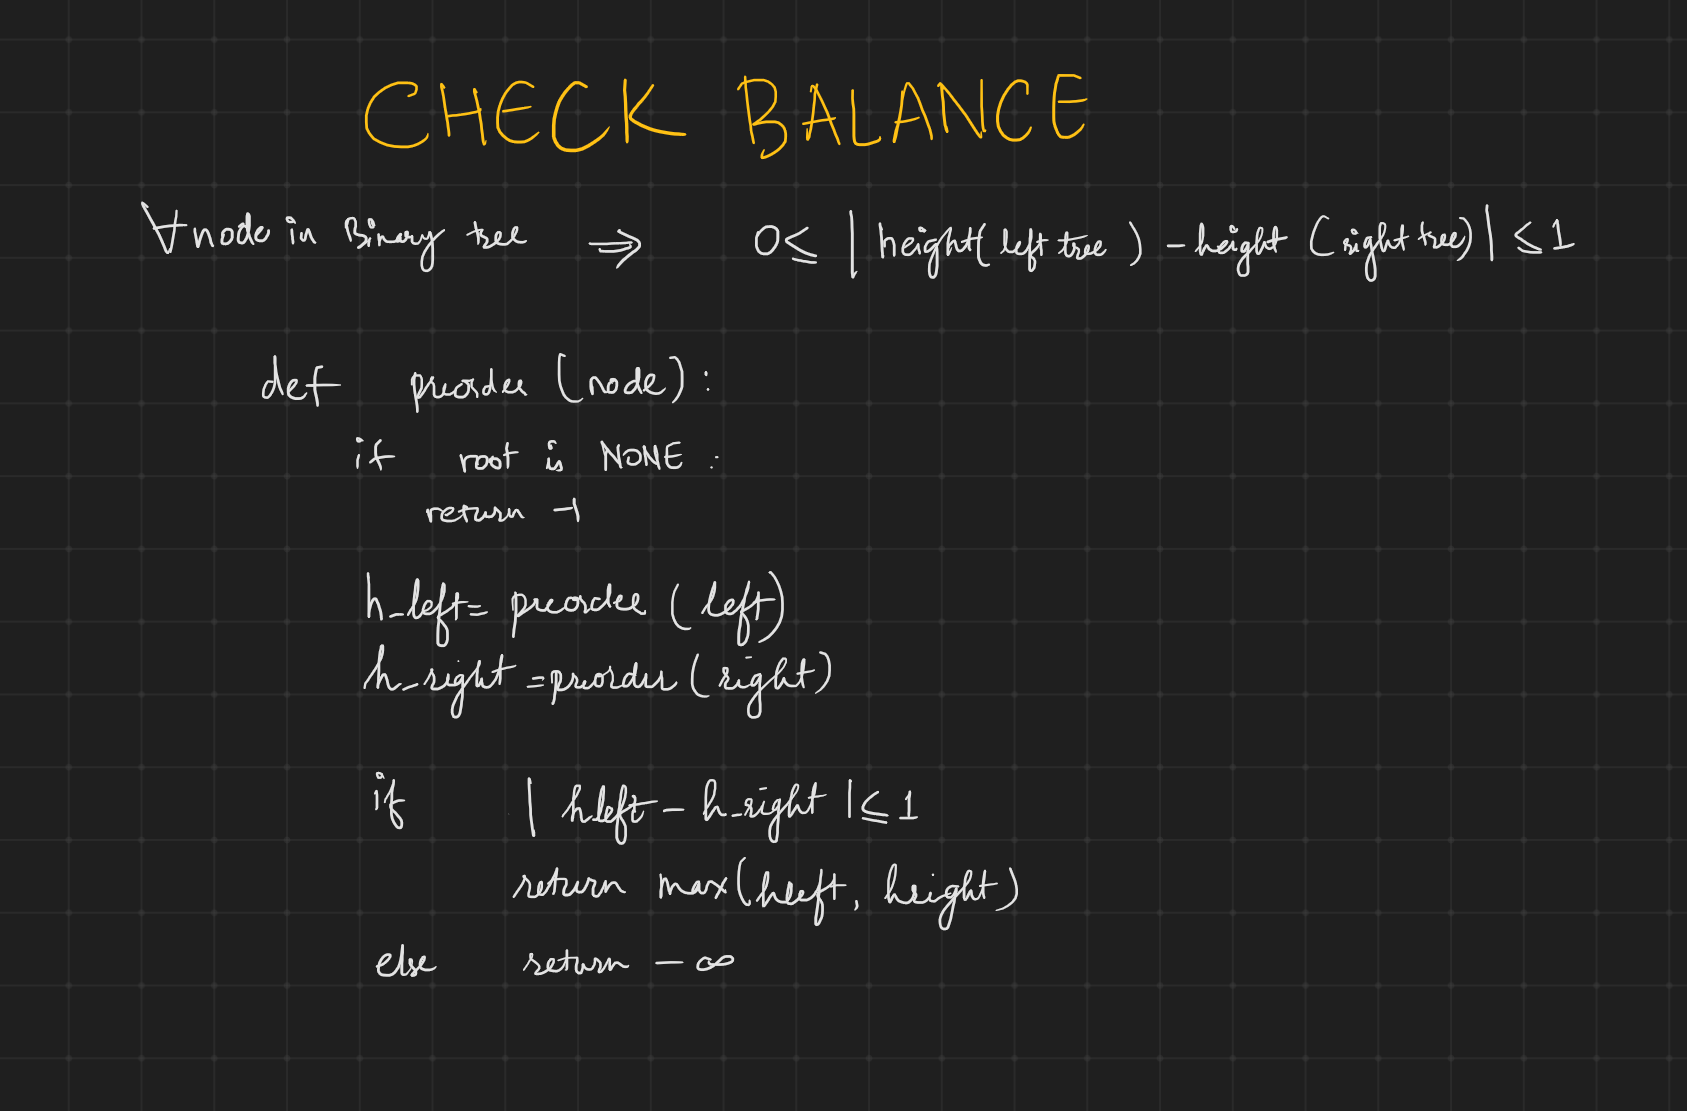 CHECK BALANCE
∀ node in Binary tree ⇒ 0 ≤ | height( left tree ) - height ( right tree) | ≤ 1
def preorder (node) :
if root is NONE :
return -1
h_left = preorder ( left)
h_right = preorder ( right)
if | hleft - h_right | ≤ 1
return max(hleft, hright)
else return - ∞